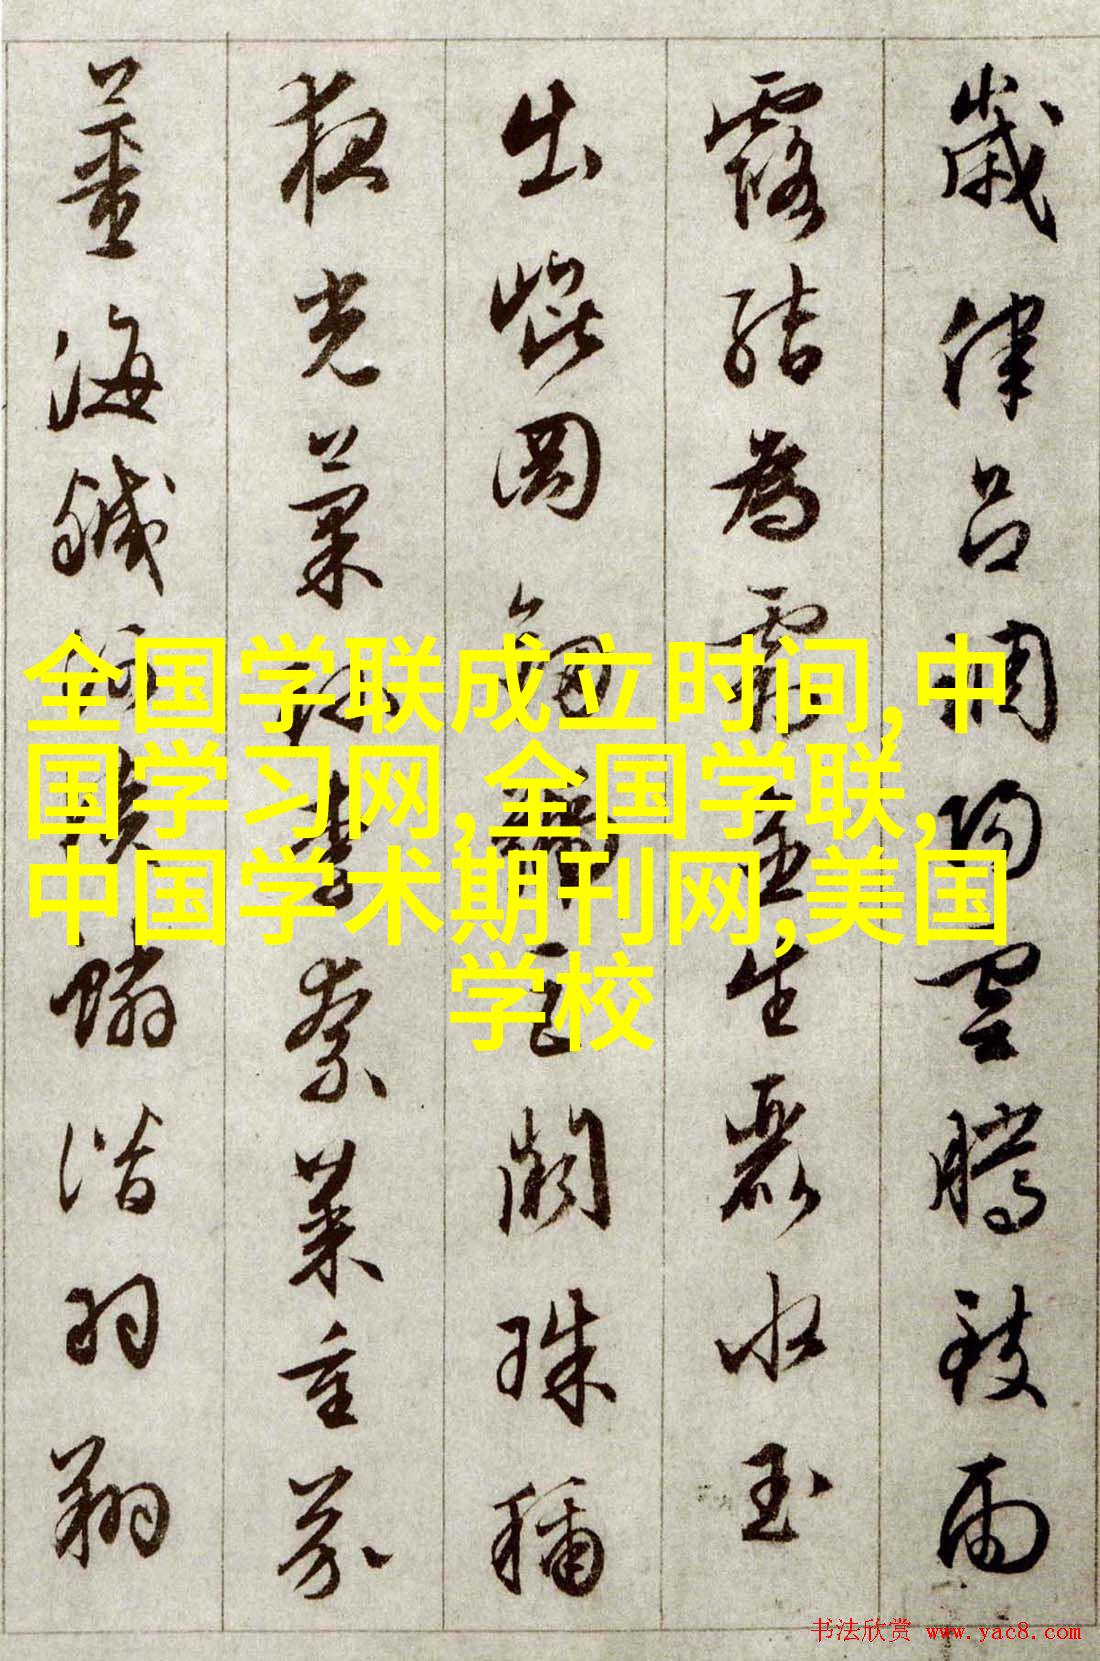 歲律呂調陽雲騰致雨
露結為霜金生麗水玉
出崐岡劍號巨闕珠稱
夜光菓珍李柰菜重芥
薑海鹹河淡鱗潛羽翔
全国学联成立时间,中
国学习网,全国学联,
中国学术期刊网,美国
学校
书法欣赏 www.yac8.com